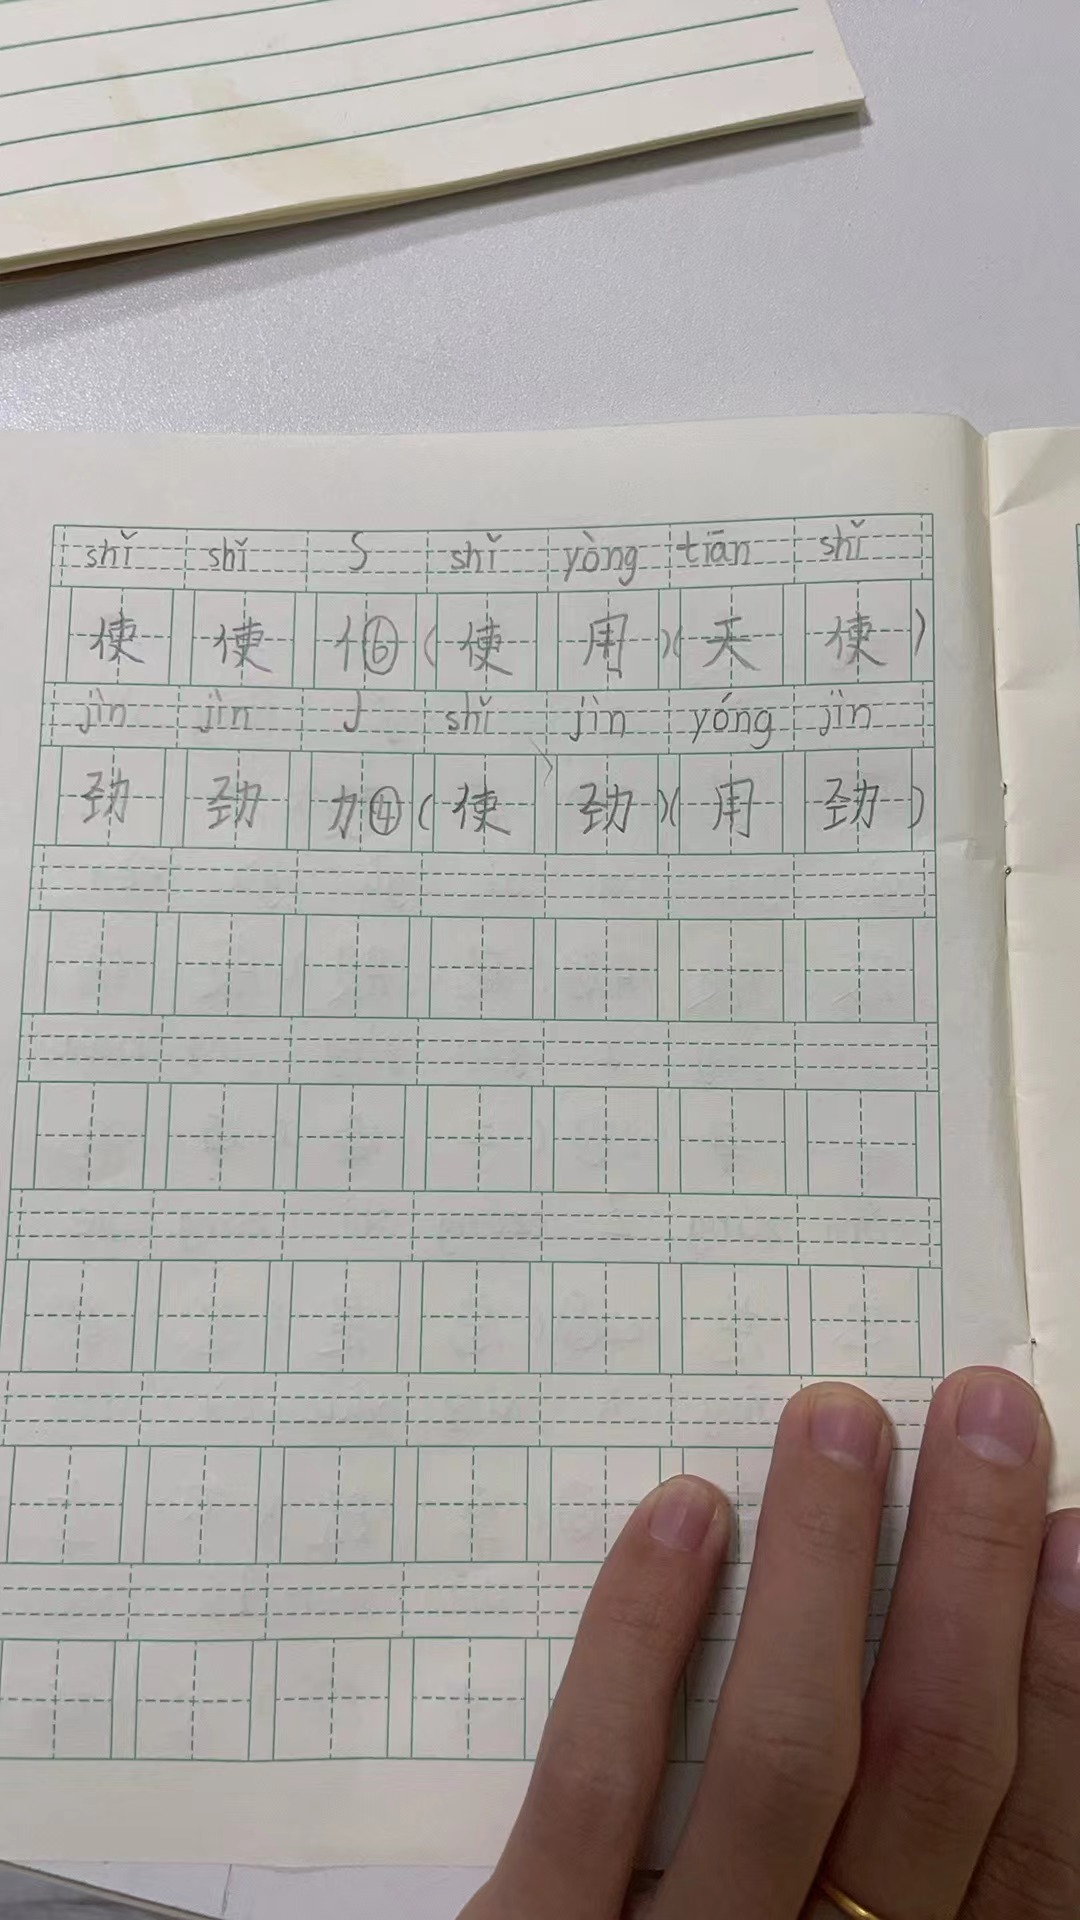 shǐ shǐ S shǐ yòng tiān shǐ
使 使 亻⑥(使 用)(天 使)
jìn jìn J shǐ jìn yóng jìn
劲 劲 力④(使 劲)(用 劲)